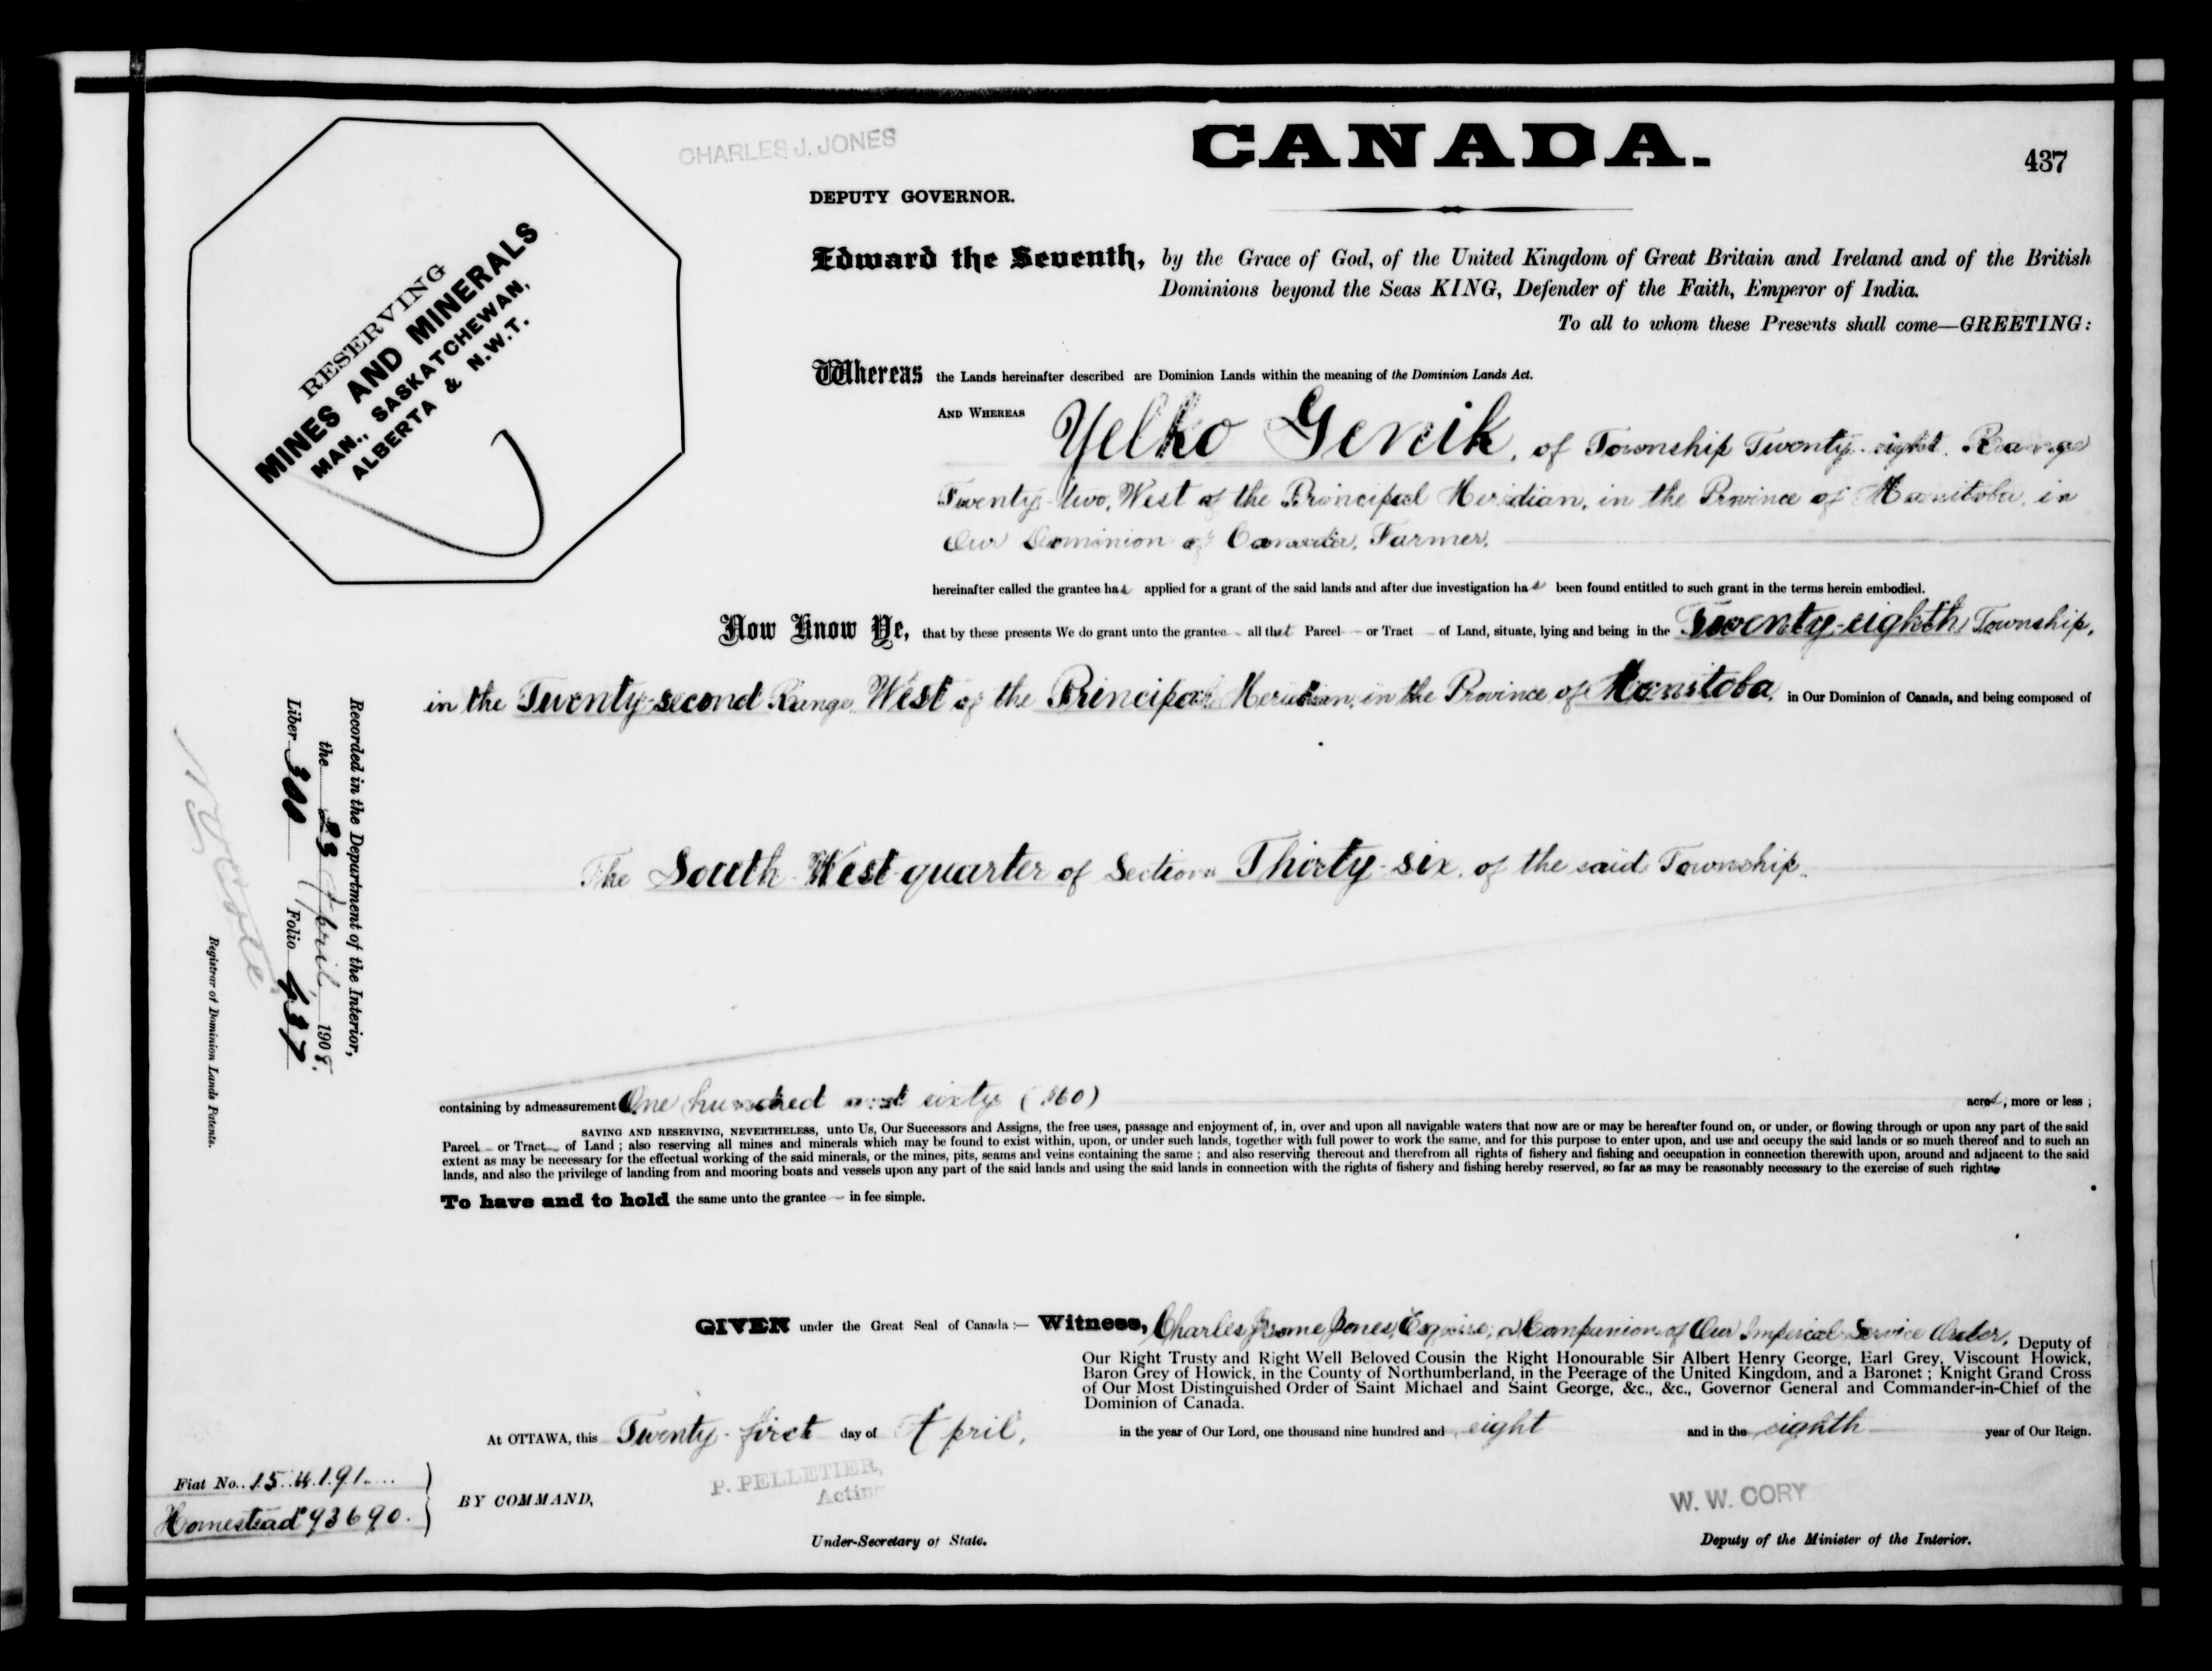 CHARLES J. JONES
CANADA.
437
DEPUTY GOVERNOR.
RESERVING
MINES AND MINERALS
MAN., SASKATCHEWAN,
ALBERTA & N.W.T.
Edward the Seventh, by the Grace of God, of the United Kingdom of Great Britain and Ireland and of the British
Dominions beyond the Seas KING, Defender of the Faith, Emperor of India.
To all to whom these Presents shall come—GREETING:
Whereas the Lands hereinafter described are Dominion Lands within the meaning of the Dominion Lands Act.
AND WHEREAS Yelko Genik, of Township Twenty-eight, Range
Twenty-two, West of the Principal Meridian, in the Province of Manitoba, in
Our Dominion of Canada, Farmer,
hereinafter called the grantee has applied for a grant of the said lands and after due investigation has been found entitled to such grant in the terms herein embodied.
Now Know Ye, that by these presents We do grant unto the grantee all that Parcel or Tract of Land, situate, lying and being in the Twenty-eighth Township,
in the Twenty-second Range West of the Principal Meridian, in the Province of Manitoba, in Our Dominion of Canada, and being composed of
The South West quarter of Section Thirty-six, of the said Township.
containing by admeasurement One hundred and sixty (160) acres, more or less ;
SAVING AND RESERVING, NEVERTHELESS, unto Us, Our Successors and Assigns, the free uses, passage and enjoyment of, in, over and upon all navigable waters that now are or may be hereafter found on, or under, or flowing through or upon any part of the said
Parcel or Tract of Land ; also reserving all mines and minerals which may be found to exist within, upon, or under such lands, together with full power to work the same, and for this purpose to enter upon, and use and occupy the said lands or so much thereof and to such an
extent as may be necessary for the effectual working of the said minerals, or the mines, pits, seams and veins containing the same ; and also reserving thereout and therefrom all rights of fishery and fishing and occupation in connection therewith upon, around and adjacent to the said
lands, and also the privilege of landing from and mooring boats and vessels upon any part of the said lands and using the said lands in connection with the rights of fishery and fishing hereby reserved, so far as may be reasonably necessary to the exercise of such rights.
To have and to hold the same unto the grantee in fee simple.
GIVEN under the Great Seal of Canada :— Witness, Charles Jerome Jones, Esquire, a Companion of Our Imperial Service Order, Deputy of
Our Right Trusty and Right Well Beloved Cousin the Right Honourable Sir Albert Henry George, Earl Grey, Viscount Howick,
Baron Grey of Howick, in the County of Northumberland, in the Peerage of the United Kingdom, and a Baronet ; Knight Grand Cross
of Our Most Distinguished Order of Saint Michael and Saint George, &c., &c., Governor General and Commander-in-Chief of the
Dominion of Canada.
At OTTAWA, this Twenty-first day of April, in the year of Our Lord, one thousand nine hundred and eight and in the eighth year of Our Reign.
BY COMMAND,
P. PELLETIER,
Acting
Under-Secretary of State.
W. W. CORY
Deputy of the Minister of the Interior.
Recorded in the Department of the Interior,
the 23 April, 1908.
Liber 300 Folio 437
Registrar of Dominion Lands Patents.
Fiat No. 154191
Homestead 93690.